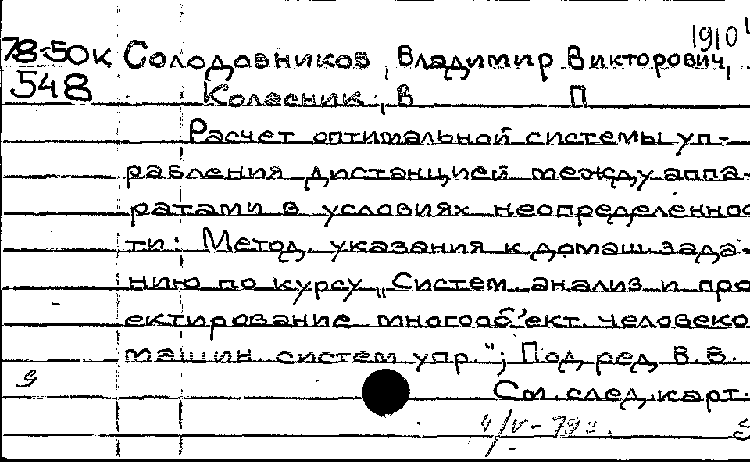 1910
78-50к Солодовников, Владимир Викторович,
548 Колесник, В П
Расчет оптимальной системы уп-
равления дистанцией между аппа-
ратами в условиях неопределеннос
ти: Метод. указания к домаш. зада-
нию по курсу „Систем. анализ и про
ектирование многооб'ект. человеко
машин. систем упр."; Под ред. В. В.
См. след. карт.
4/V-79г.